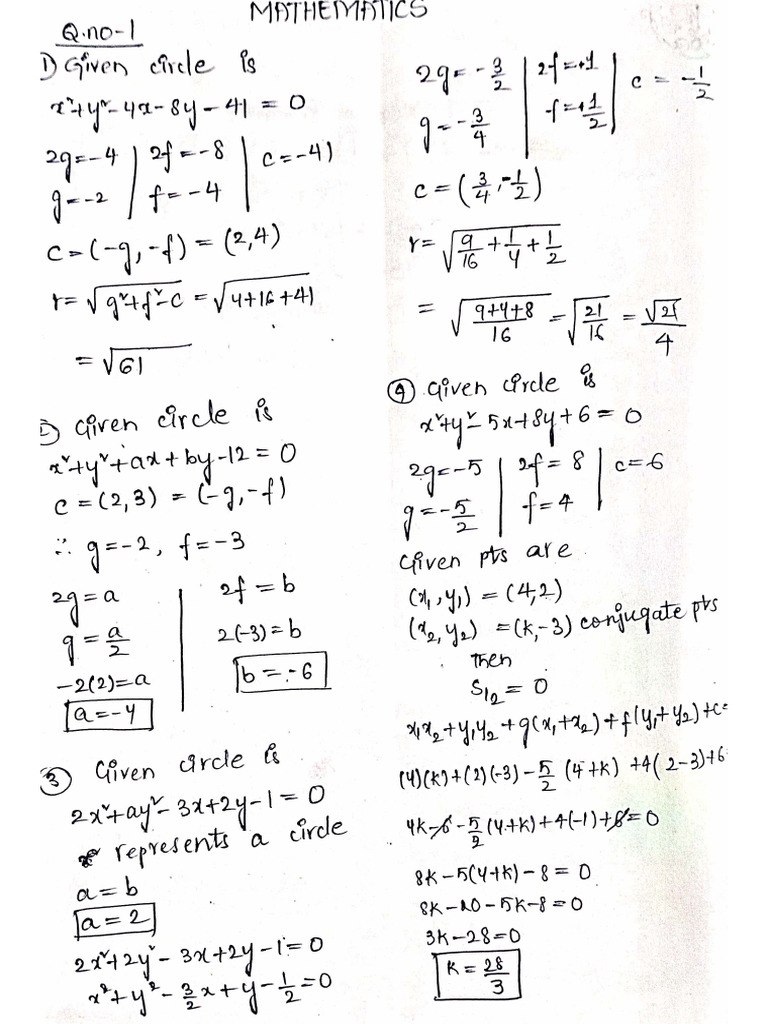 MATHEMATICS
Q.no-1
1) Given circle is
x²+y²-4x-8y-41=0
2g=-4 | 2f=-8 | c=-41
g=-2 | f=-4
c=(-g,-f)=(2,4)
r=√g²+f²-c = √4+16+41
=√61
Given circle is
x²+y²+ax+by-12=0
c=(2,3)=(-g,-f)
∴ g=-2, f=-3
2g=a | 2f=b
g=a/2 | 2(-3)=b
-2(2)=a | b=-6
a=-4
③ Given circle is
2x²+ay²-3x+2y-1=0
represents a circle
a=b
a=2
2x²+2y²-3x+2y-1=0
x²+y²-3/2x+y-1/2=0
2g=-3/2 | 2f=+1 | c=-1/2
g=-3/4 | f=+1/2
c=(3/4,-1/2)
r=√9/16+1/4+1/2
=√9+4+8/16=√21/16=√21/4
④ Given circle is
x²+y²-5x+8y+6=0
2g=-5 | 2f=8 | c=6
g=-5/2 | f=4
Given pts are
(x₁,y₁)=(4,2)
(x₂,y₂)=(k,-3) conjugate pts
Then
S₁₂=0
x₁x₂+y₁y₂+g(x₁+x₂)+f(y₁+y₂)+c=
(4)(k)+(2)(-3)-5/2(4+k)+4(2-3)+6
4k-6-5/2(4+k)+4(-1)+6=0
8k-5(4+k)-8=0
8k-20-5k-8=0
3k-28=0
k=28/3